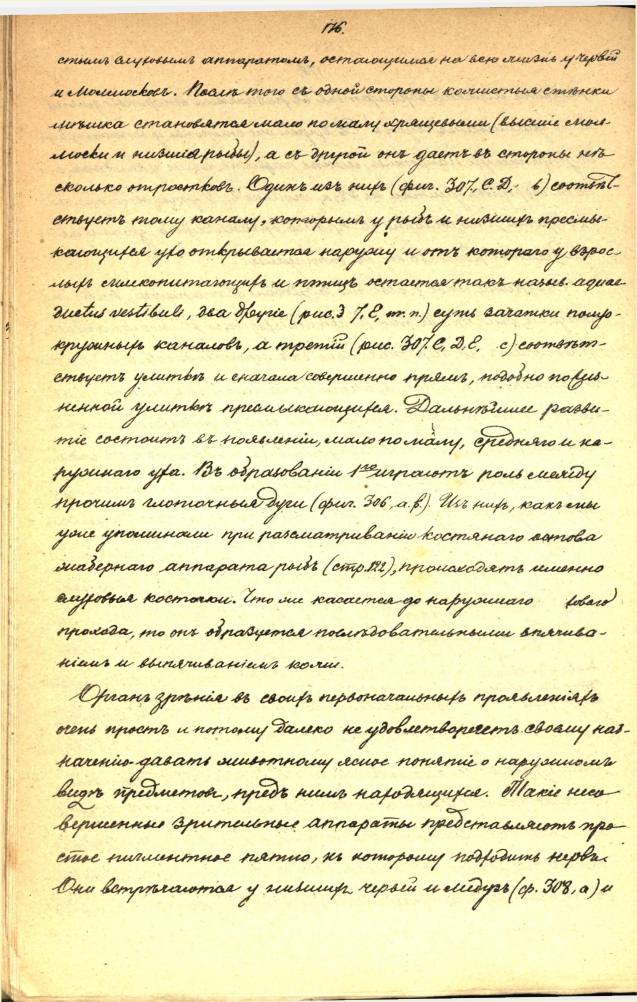 176.
стымъ слуховымъ аппаратомъ, остающимся на всю жизнь у червей
и Моллюсковъ. Послѣ того съ одной стороны кожистыя стѣнки
мѣшка становятся мало по малу хрящевыми (высшіе мол-
люски и низшія рыбы), а съ другой онъ даетъ въ стороны нѣ-
сколько отростковъ. Одинъ изъ нихъ (фиг. 307, C. D, b) соотвѣт-
ствуетъ тому каналу, которымъ у рыбъ и низшихъ пресмы-
кающихся ухо открывается наружу и отъ котораго у взрос-
лыхъ млекопитающихъ и птицъ остается такъ назыв. aquae-
ductus vestibuli, два другіе (рис. 3 7. E, m. n.) суть зачатки полу-
кружныхъ каналовъ, а третій (рис. 307. C, D. E, c) соотвѣт-
ствуетъ улиткѣ и сначала совершенно прямъ, подобно
ненной улиткѣ пресмыкающихся. Дальнѣйшее разви-
тіе состоитъ въ появленіи, мало по малу, средняго и на-
ружнаго уха. Въ образованіи 1го играютъ роль между
прочимъ глоточныя дуги (фиг. 306, a. b). Изъ нихъ, какъ мы
уже упоминали при разсматриваніи костянаго остова
жабернаго аппарата рыбъ (стр. 122), происходятъ именно
слуховыя косточки. Что же касается до наружнаго ховаго
прохода, то онъ образуется послѣдовательными впячива-
ніемъ и выпячиваніемъ кожи.
Органъ зрѣнія въ своихъ первоначальныхъ проявленіяхъ
очень простъ и потому далеко не удовлетворяетъ своему наз-
наченію давать животному ясное понятіе о наружномъ
видѣ предметовъ, предъ нимъ находящихся. Такіе несо-
вершенные зрительные аппараты представляютъ про-
стое пигментное пятно, къ которому подходитъ нервъ.
Они встрѣчаются у низшихъ червей и медузъ (ф. 308, a) и